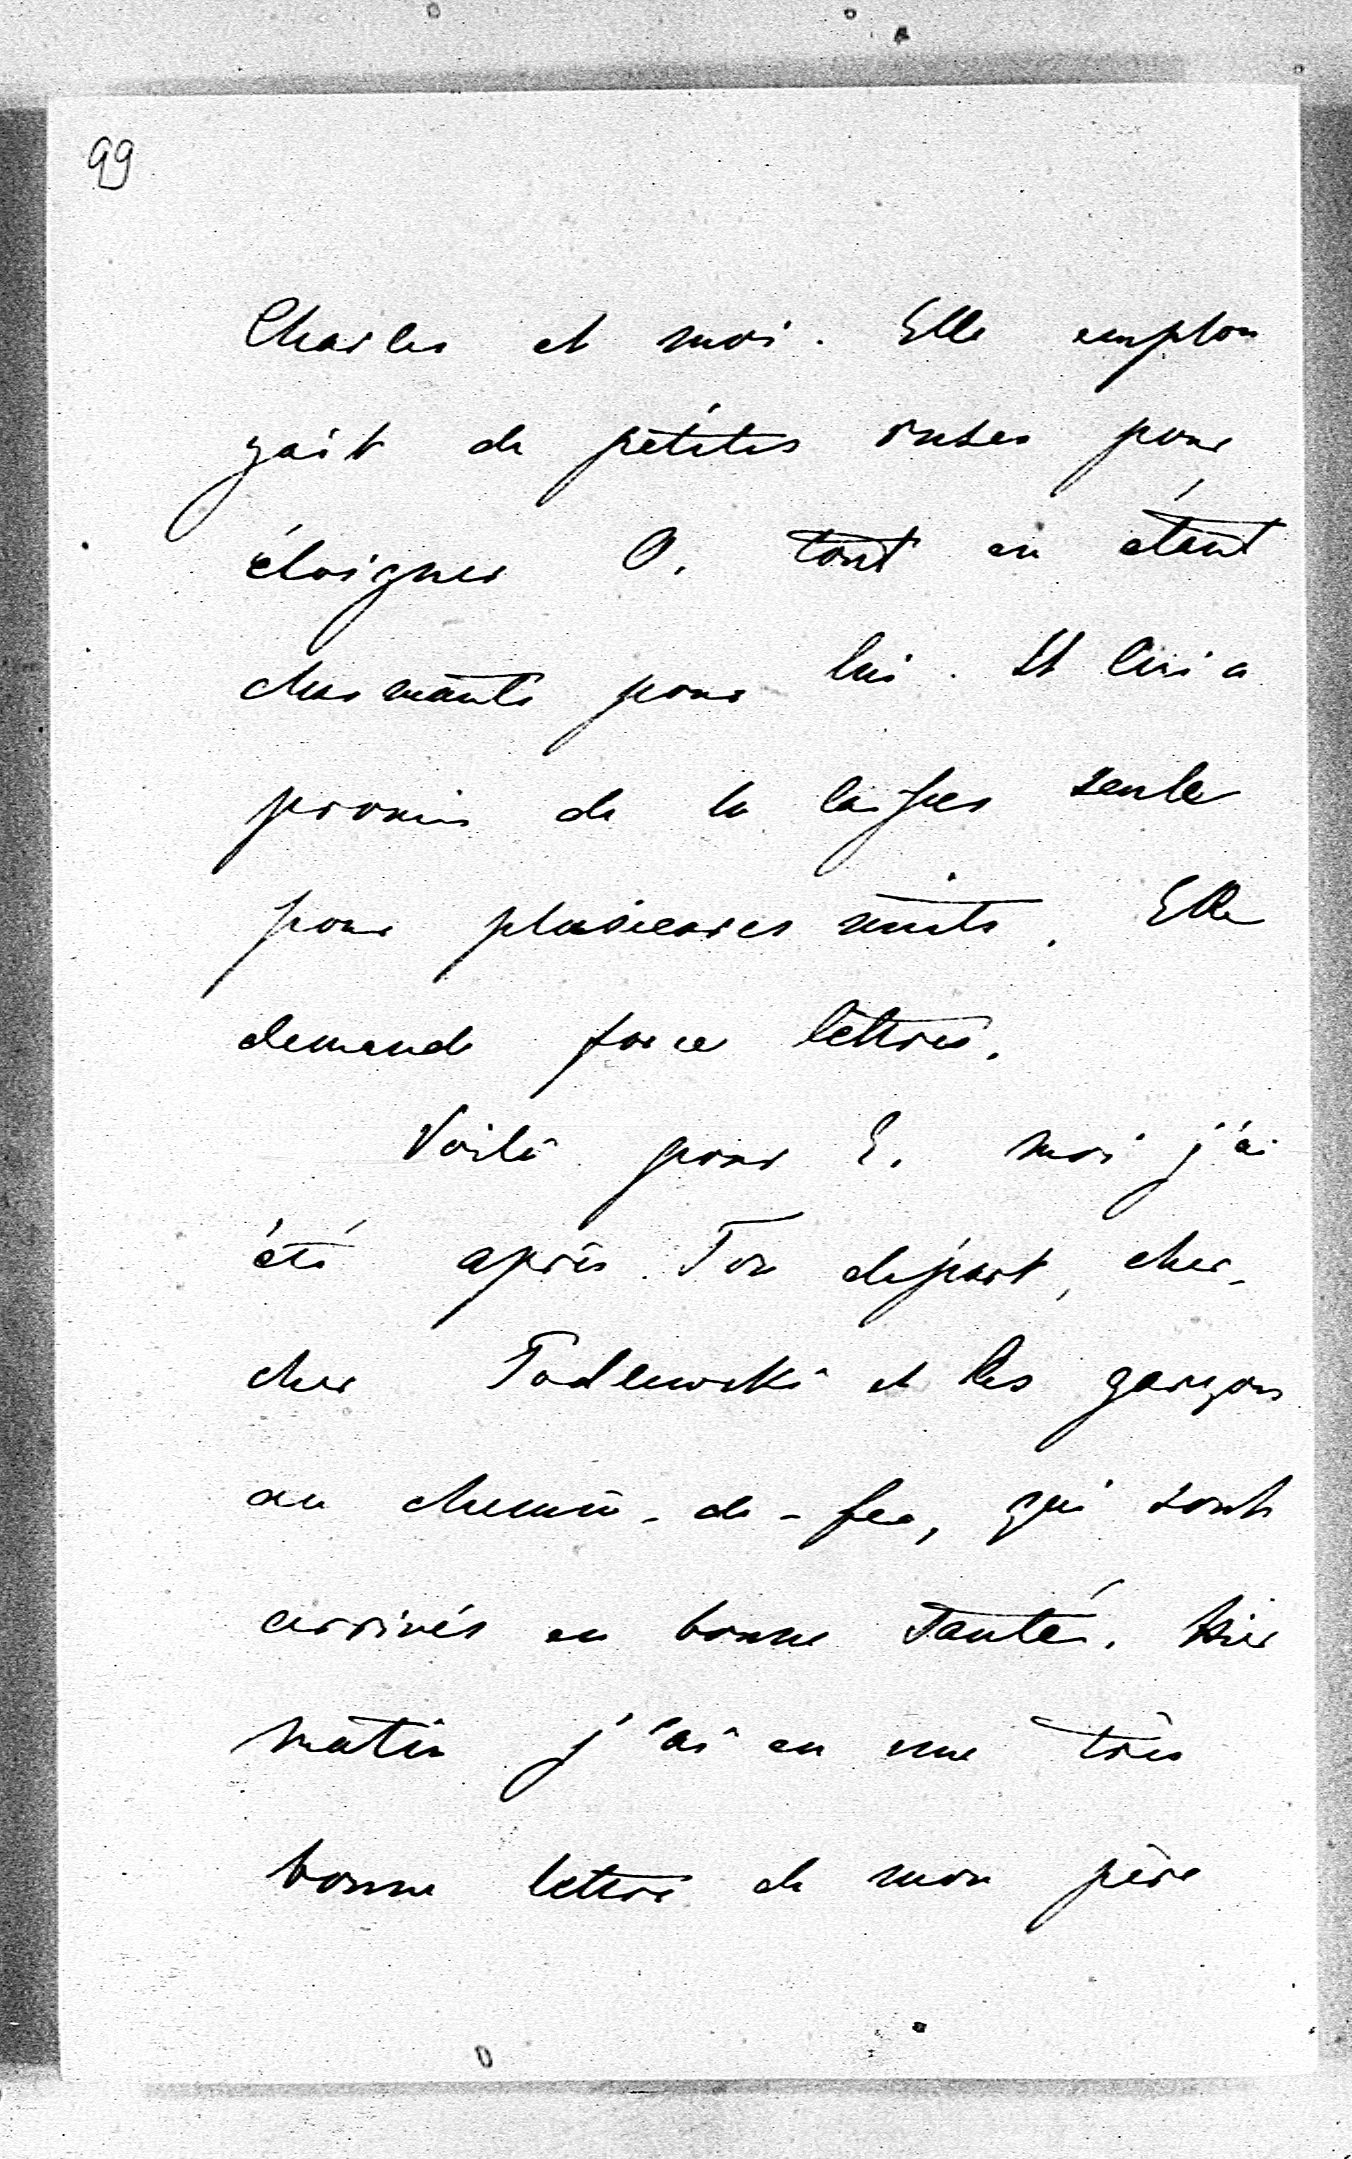 99
Charles et moi. Elle emplo
yait de petites ruses pour
éloigner O. tout en étant
charmante pour lui. Il lui a
promis de la laisser seule
pour plusieures nuits. Elle
demande force lettres.
Voilà pour E. moi j'ai
été après Ton départ, cher-
cher et les garçons
au chemin-de-fer, qui sont
arrivés en bonne santé. Hier
matin j'ai eu une très
bonne lettre de mon père